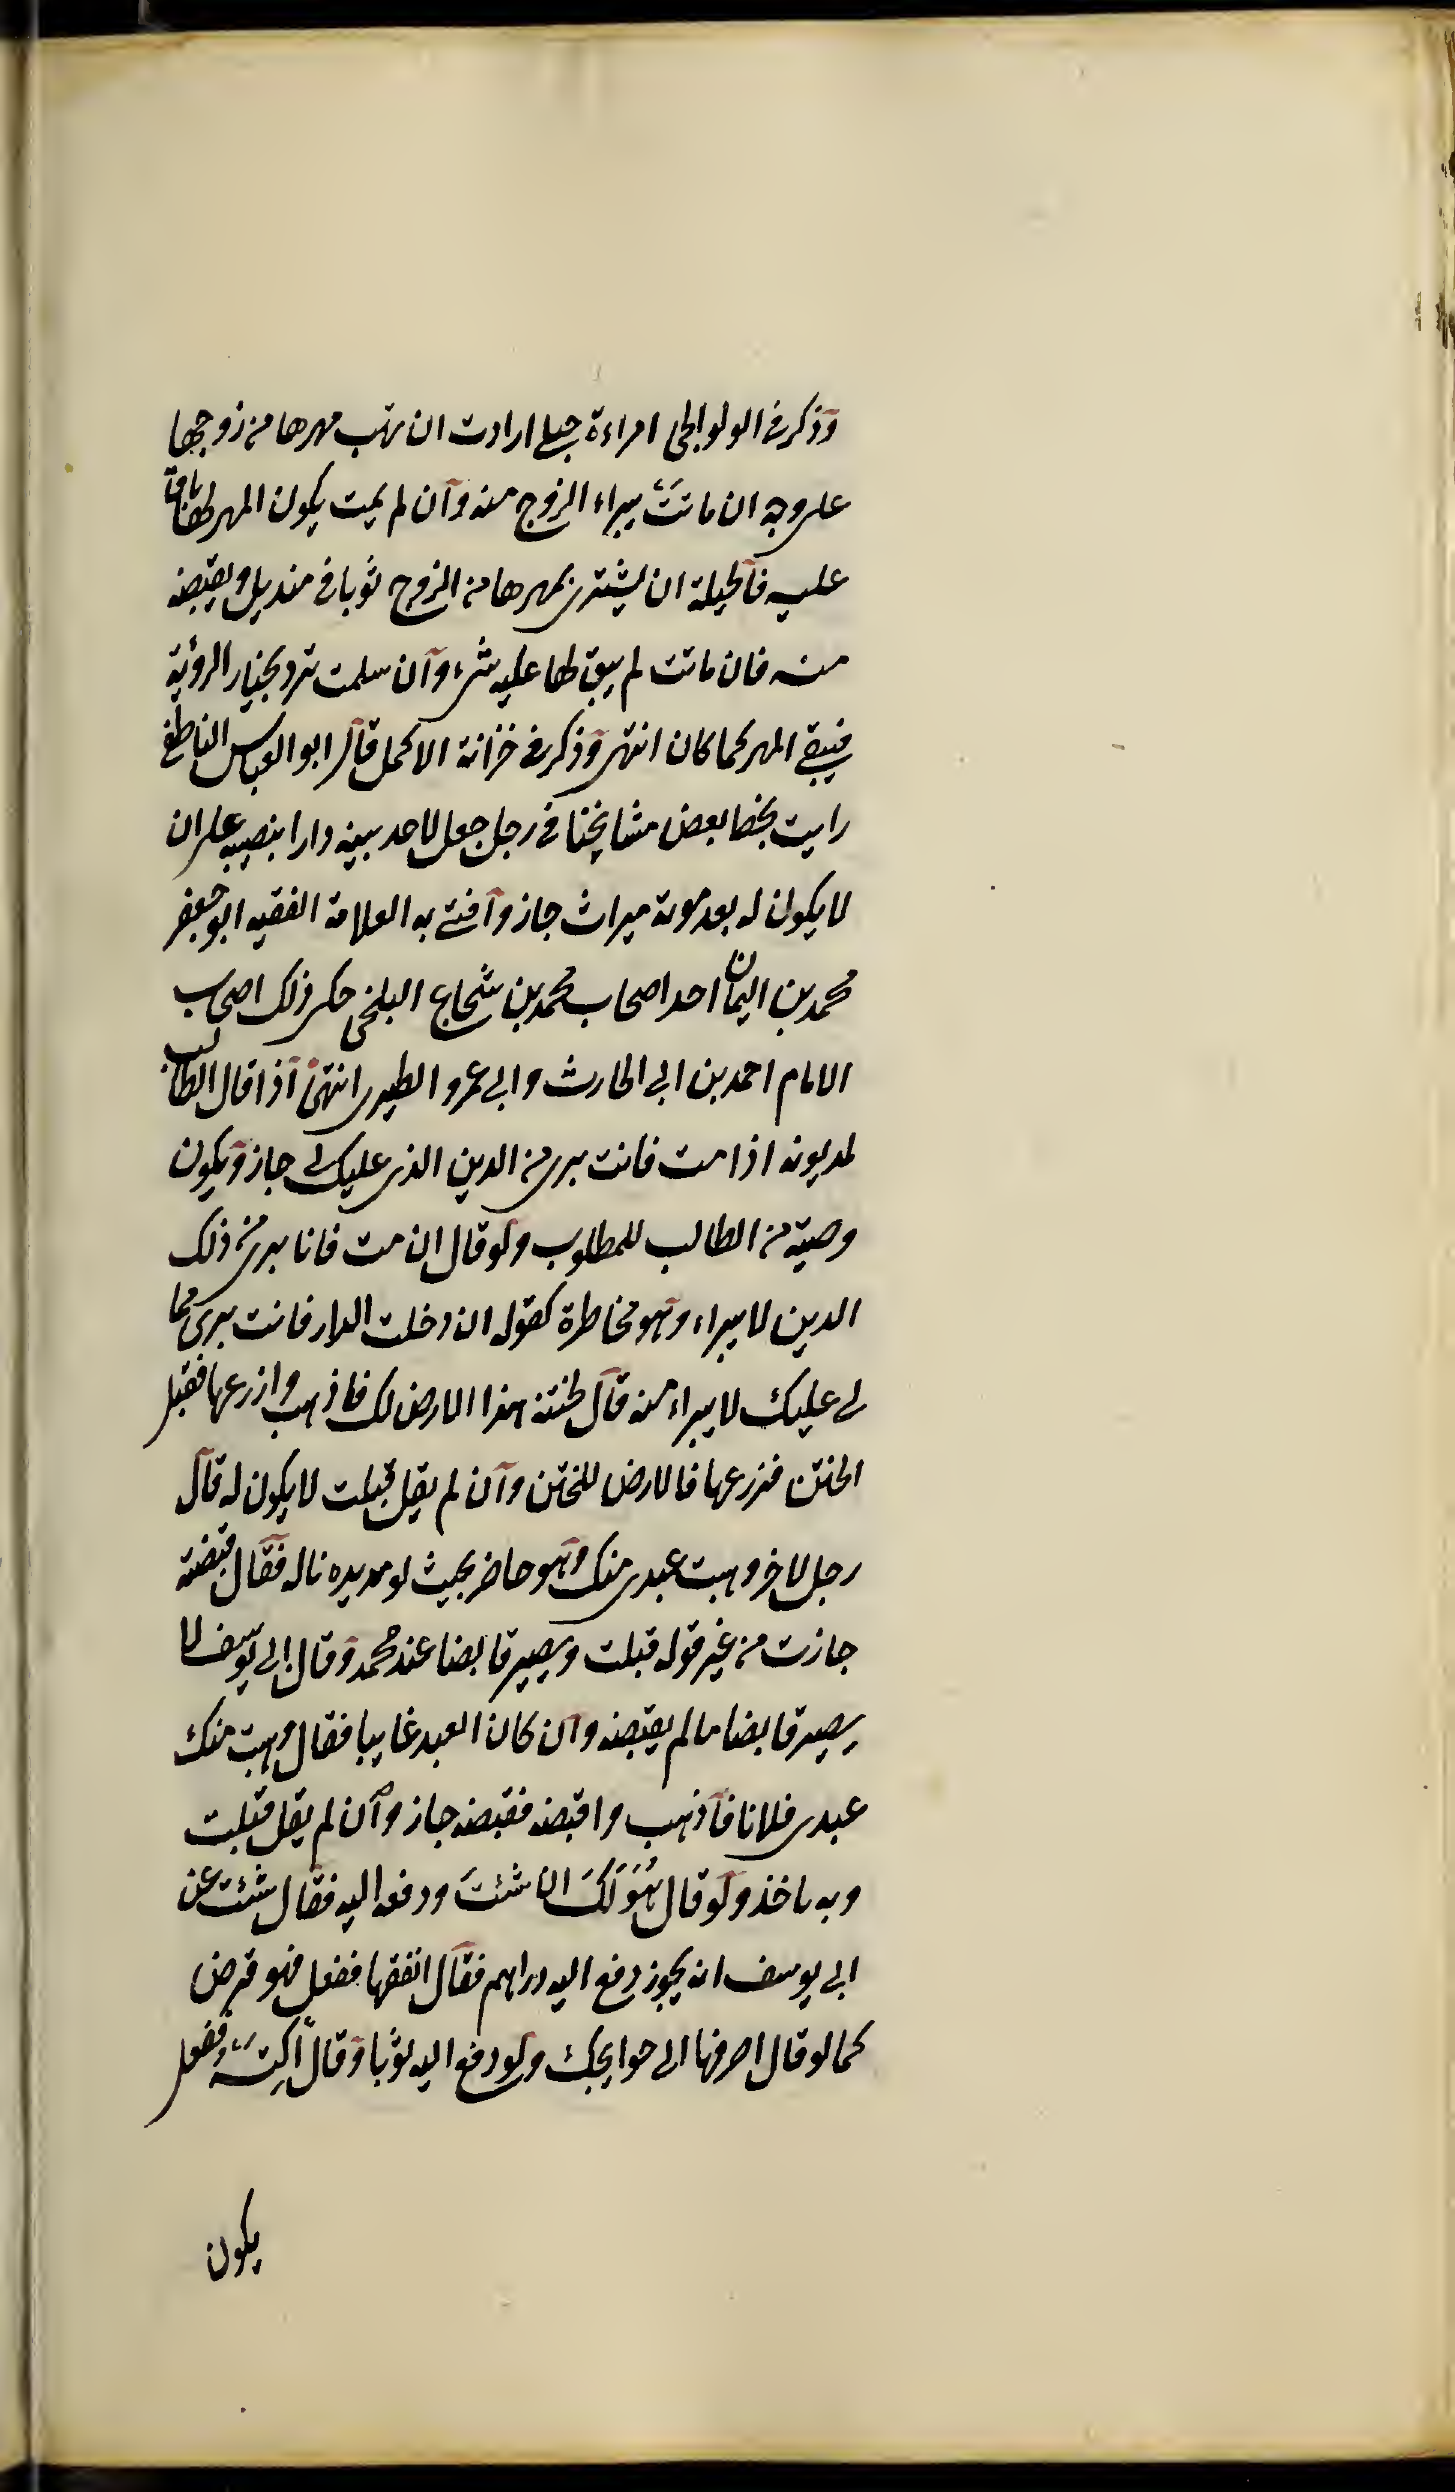 وذكر في الولوالجي امراءة حبلى ارادت ان تهب مهرها من زوجها
على وجه ان ماتت يبراء الزوج منه وان لم يمت يكون المهر لها باقيا
عليه فالحيلة ان يشترى بمهرها من الزوج ثوبا في منديل ويقبضه
منه فان ماتت لم يبق لها عليه شىء وان سلمت ترد بخيار الرؤية
فيبقى المهر كما كان انتهى وذكر في خزانة الاكمل قال ابو العباس الناطفى
رايت بخط بعض مشايخنا في رجل جعل لاحد بنيه دارا بنصيبه على ان
لا يكون له بعد موته ميراث جاز وافتى به العلامة الفقيه ابو جعفر
محمد بن اليمان احد اصحاب محمد بن شجاع البلخى حكى ذلك اصحاب
الامام احمد بن ابي الحارث وابي عمرو الطبرى انتهى اذا قال الطالب
لمديونه اذا مت فانت برى من الدين الذى عليك لي جاز ويكون
وصية من الطالب للمطلوب ولو قال ان مت فانا برى من ذلك
الدين لا يبراء وهو مخاطرة كقوله ان دخلت الدار فانت برى مما
لي عليك لا يبراء منه قال لختنه هذا الارض لك فاذهب وازرعها فقبل
الختن فزرعها فالارض للختن وان لم يقل قبلت لا يكون له قال
رجل لاخر وهبت عبدى منك وهو حاضر بحيث لو مد يده ناله فقال قبضته
جازت من غير قوله قبلت ويصير قابضا عند محمد وقال ابي يوسف لا
يصير قابضا ما لم يقبضه وان كان العبد غايبا فقال وهبت منك
عبدى فلانا فاذهب واقبضه فقبضه جاز وان لم يقل قبلت
وبه ناخذ ولو قال هُوَ لَكَ ان شئتَ ودفعه اليه فقال شئت عن
ابى يوسف انه يجوز دفع اليه دراهم فقال انفقها ففعل فهو قرض
كما لو قال اصرفها الى حوايجك ولو دفع اليه ثوبا وقال اكتسه ففعل
يكون